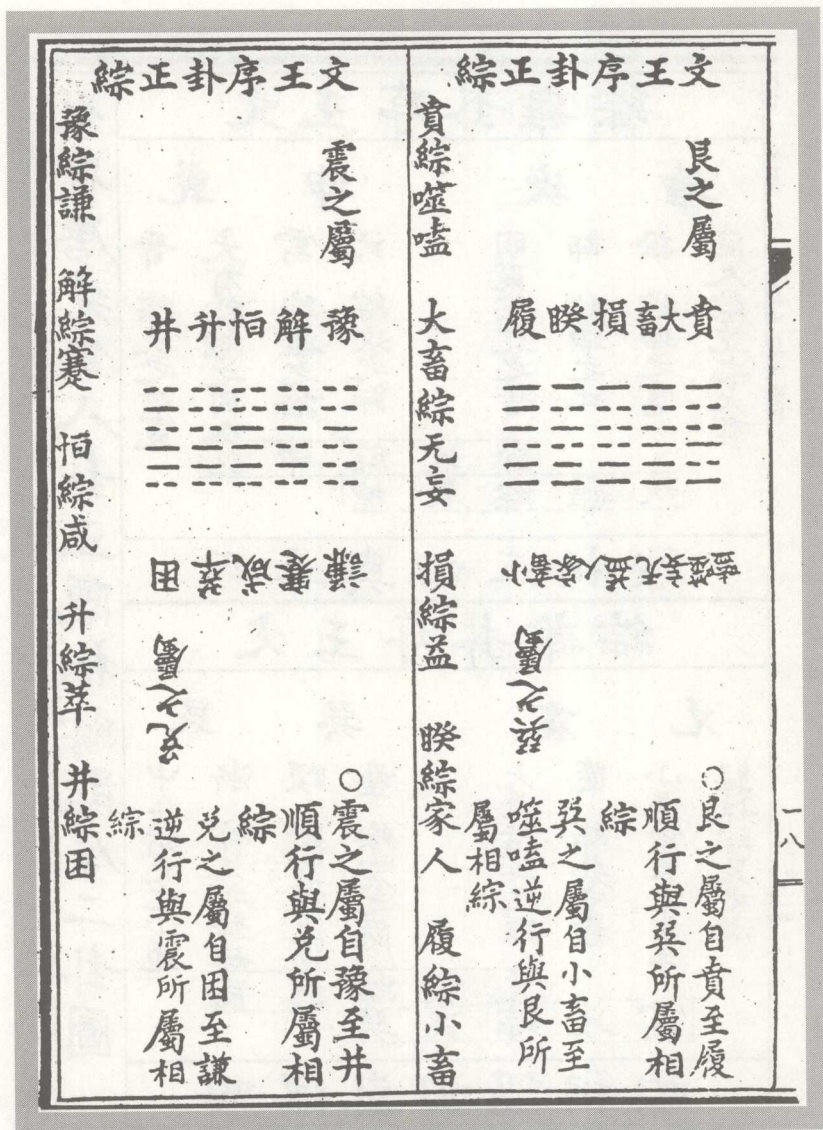 文王序卦正綜
艮之屬
賁 大畜 損 睽 履
噬嗑 无妄 益 家人 小畜
巽之屬
○艮之屬自賁至履
順行與巽所屬相
綜
巽之屬自小畜至
噬嗑逆行與艮所
屬相綜
賁綜噬嗑 大畜綜无妄 損綜益 睽綜家人 履綜小畜
文王序卦正綜
震之屬
豫 解 恒 升 井
謙 蹇 咸 萃 困
兌之屬
○震之屬自豫至井
順行與兌所屬相
綜
兌之屬自困至謙
逆行與震所屬相
綜
豫綜謙 解綜蹇 恒綜咸 升綜萃 井綜困
一八